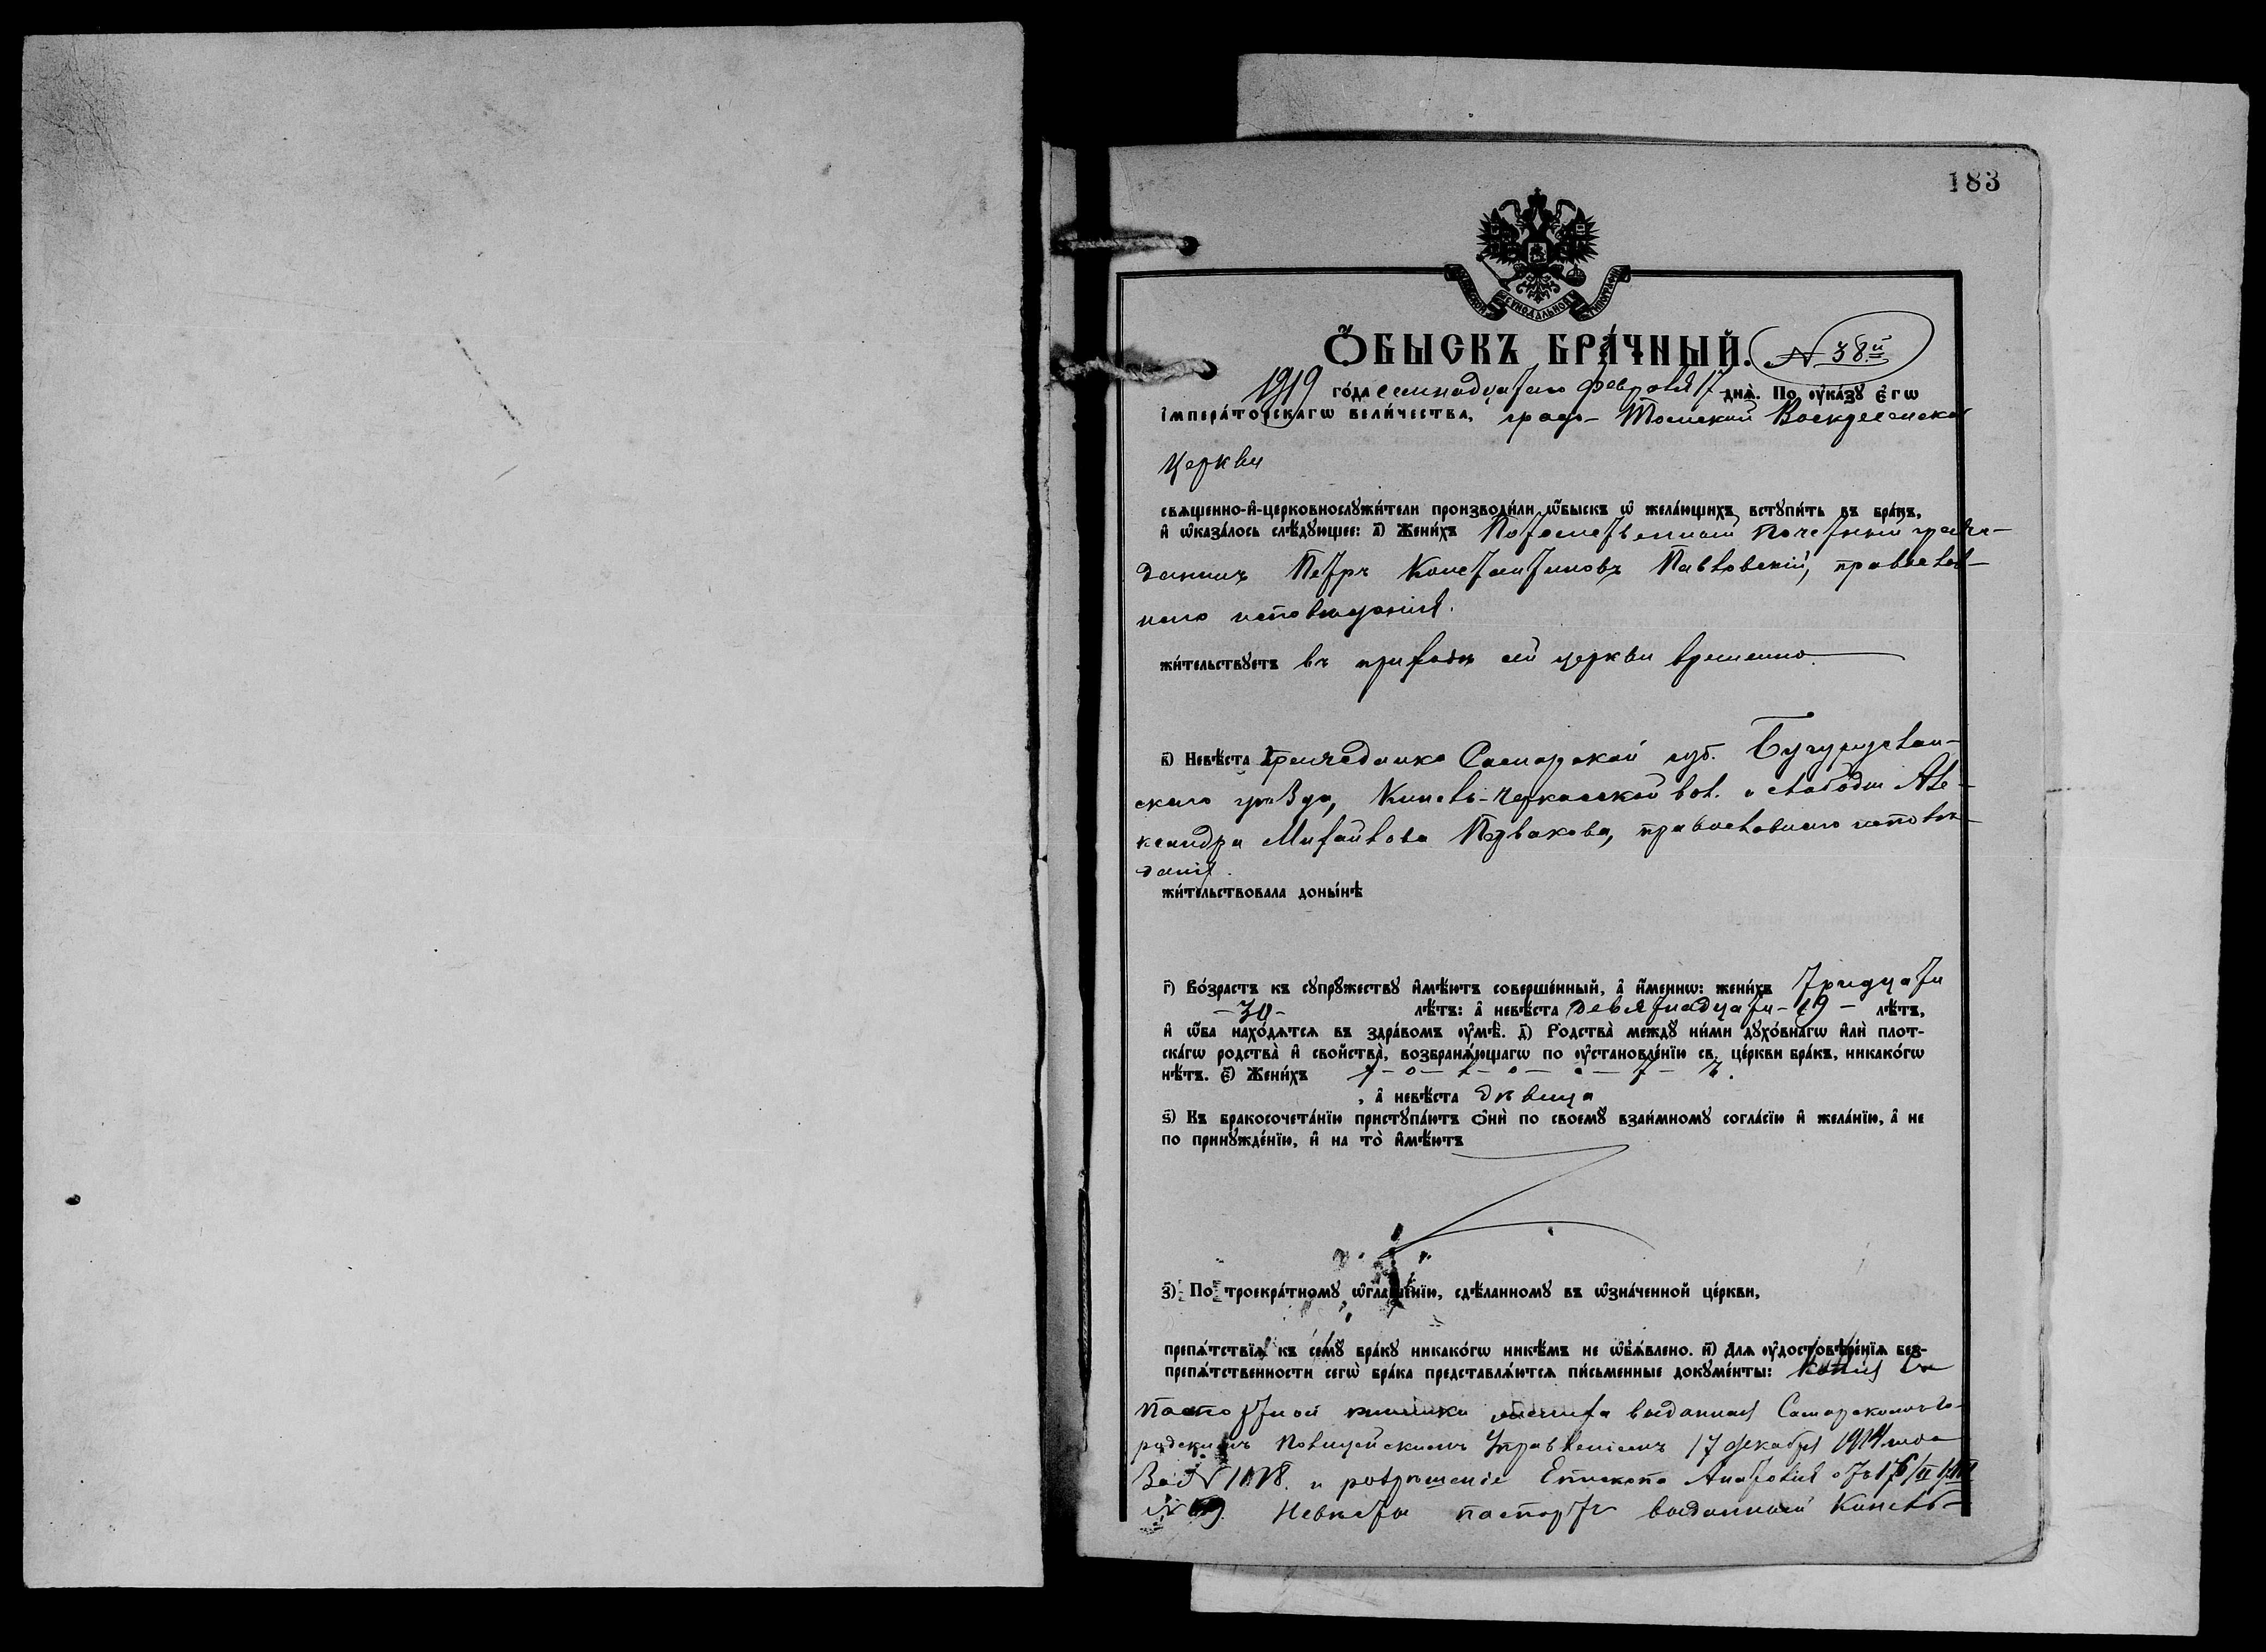 183
СѴНОДАЛЬНОЙ
Ѻ҆БЫСКЪ БРА́ЧНЫЙ. N 38й
1919 го́да семнадцатаго февраля 17 днѧ̀. По ᲂу҆ка́зꙋ Є҆гѡ
І҆мпера́торскагѡ вели́чества, градо-Томской Воскресенской
церкви
свѧще́нно-и҆-церковнослꙋжи́тели производи́ли ѡ҆́быскъ ѡ҆ жела́ющихъ встꙋпи́ть въ бра́къ,
и҆ ѡ҆каза́лось слѣ́дꙋющее: а҃) Жени́хъ Потомственный почетный граж-
данинъ Петръ Константиновъ Павловскій, православ-
наго исповѣданія.
жи́тельствꙋетъ въ приходѣ сей церкви временно
в҃) Невѣ́ста гражданка Самарской губ. Бугуруслан-
скаго уѣзда, Кинель-Черкасской вол. и слободы Але-
ксандра Михайлова Первакова, православнаго исповѣ-
данія.
жи́тельствовала доны́нѣ
г҃) Во́зрастъ къ сꙋпрꙋ́жествꙋ и҆мѣ́ютъ соверше́нный, а҆ и҆́меннѡ: жени́хъ тридцати
-30- лѣ́тъ: а҆ невѣ́ста девятнадцати-19- лѣ́тъ,
и҆ ѻ҆́ба нахо́дѧтсѧ въ здра́вомъ ᲂу҆мѣ̀. д҃) Родства̀ междꙋ̀ ни́ми дꙋхо́внагѡ и҆лѝ плот-
ска́гѡ родства̀ и҆ сво́йства, возбранѧ́ющагѡ по ᲂу҆становле́нїю св. це́ркви бра́къ, никако́гѡ
нѣ́тъ. є҃) Жени́хъ х-о-л-о-с-т-ъ.
, а҆ невѣ́ста дѣвица
ѕ҃) Къ бракосочета́нїю пристꙋпа́ютъ ѻ҆нѝ по своемꙋ̀ взаи́мномꙋ согла́сїю и҆ жела́нїю, а҆ не
по принꙋжде́нїю, и҆ на то̀ и҆мѣ́ютъ
з҃) По троекра́тномꙋ ѡ҆глаше́нїю, сдѣ́ланномꙋ въ ѡ҆зна́ченной це́ркви,
препѧ́тствїѧ къ семꙋ̀ бра́кꙋ никако́гѡ никѣ́мъ не ѡ҆б̾ѧ́влено. и҃) Длѧ ᲂу҆достовѣре́нїѧ без-
препѧ́тственности сегѡ̀ бра́ка представлѧ́ютсѧ пи́сьменные докꙋме́нты: копія съ
паспортной книжки жениха выданная Самарскимъ го-
родскимъ полицейскимъ управленіемъ 17 декабря 1914 года
за N и разрѣшеніе Епископа Анатолія отъ
N Невѣсты паспортъ выданный Кинель-